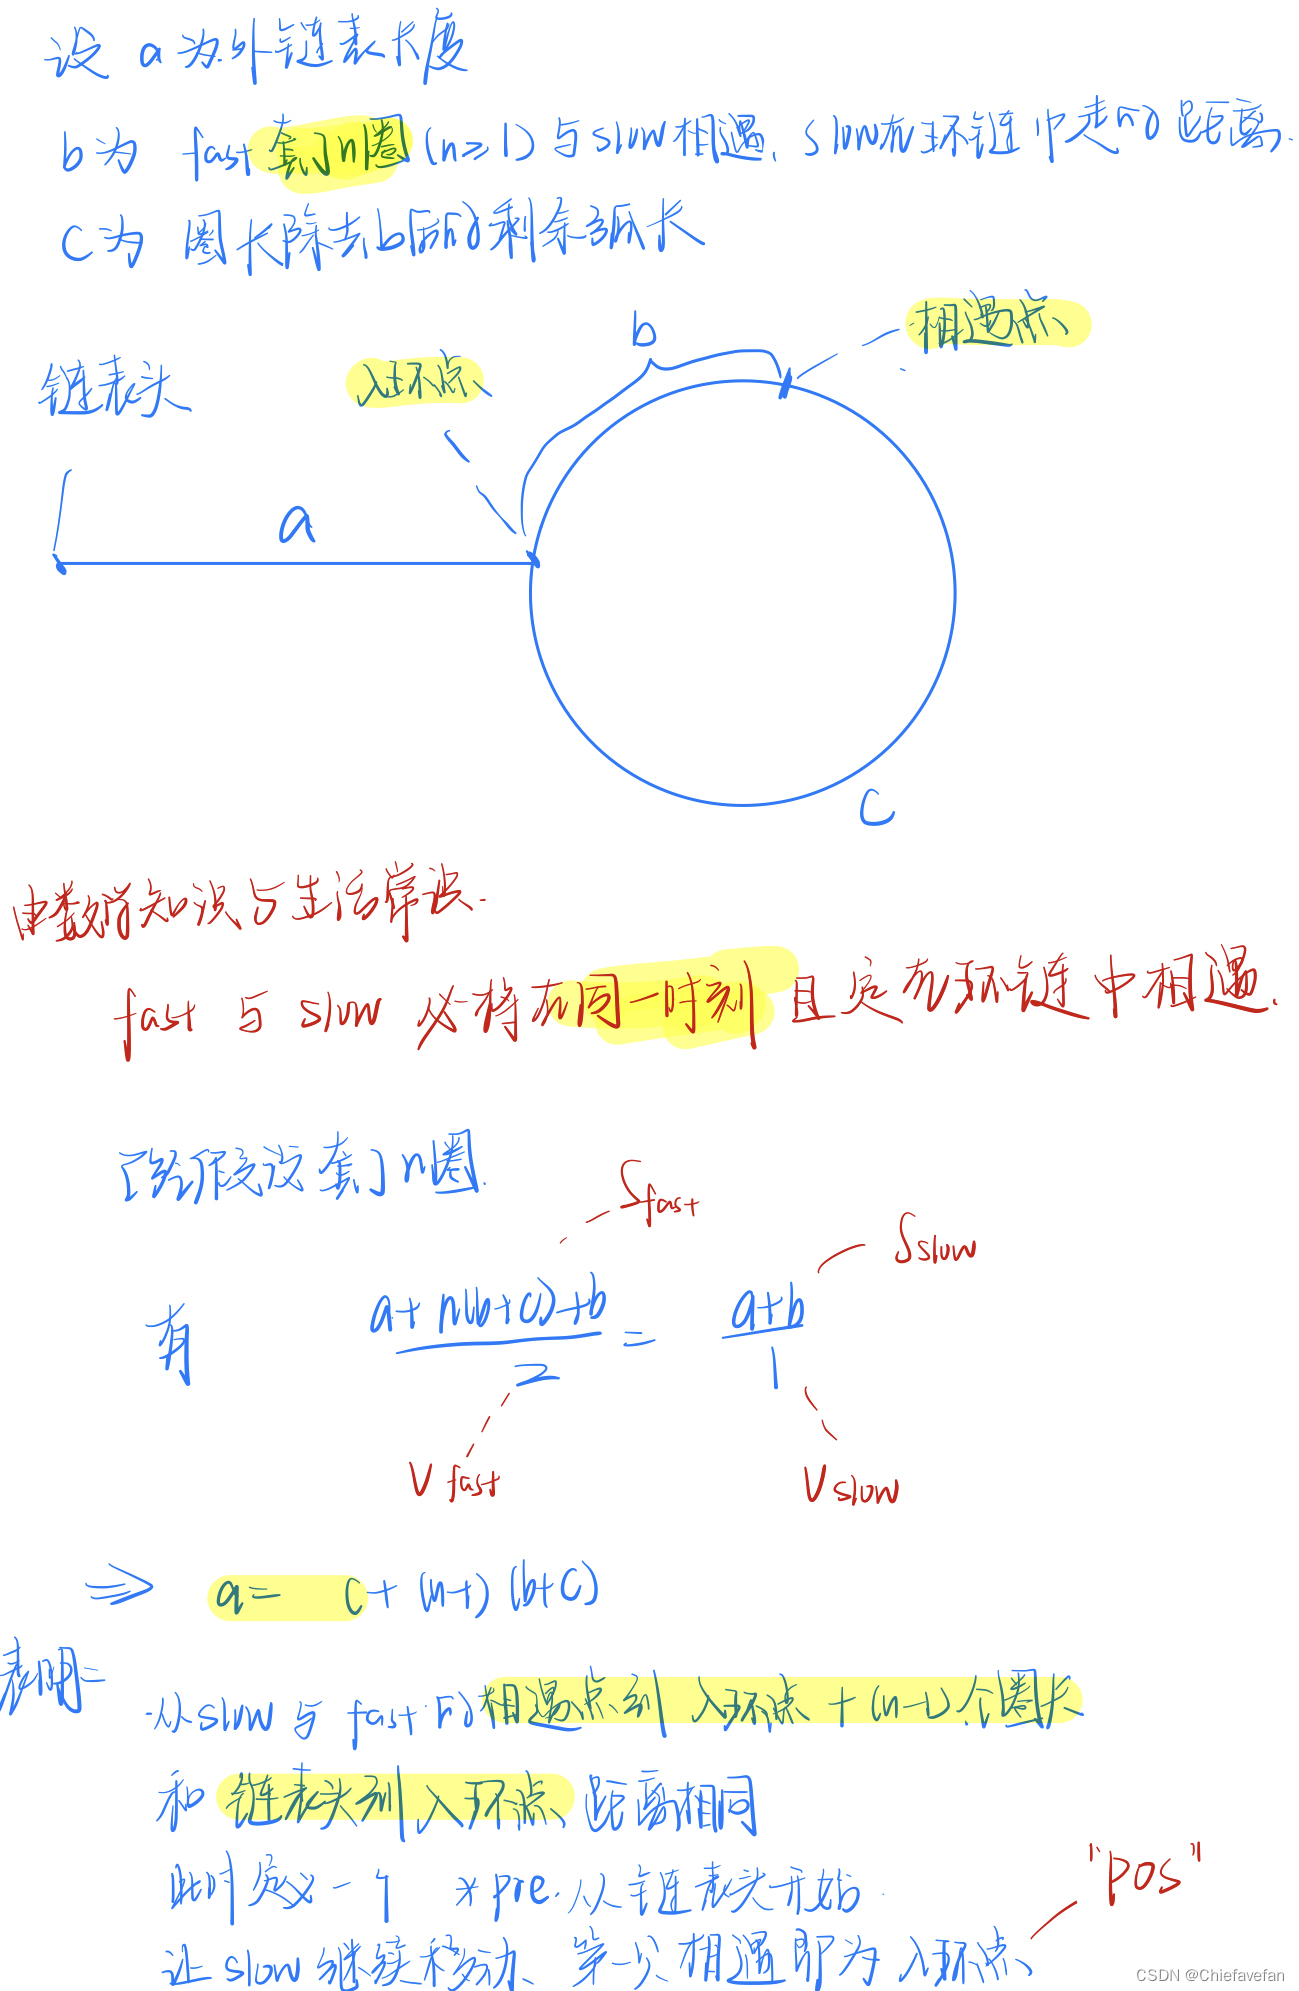 设 a为外链表长度
b为 fast套了n圈(n≥1)与slow相遇, slow在环链中走的距离.
C为 圈长除去b后的剩余弧长
b
相遇点
链表头
入环点
a
C
由数学知识与生活常识.
fast 与 slow 必将在同一时刻且定在环链中相遇.
假设套了n圈.
Sfast
Sslow
有 a+n(b+c)+b / 2 = a+b / 1
Vfast
Vslow
⇒ a= C+(n-1)(b+C)
表明:
从slow与fast的相遇点到入环点+(n-1)个圈长
和链表头到入环点距离相同
"pos"
此时定义一个 *pre.从链表头开始.
让slow继续移动、第一次相遇即为入环点
CSDN @Chiefavefan